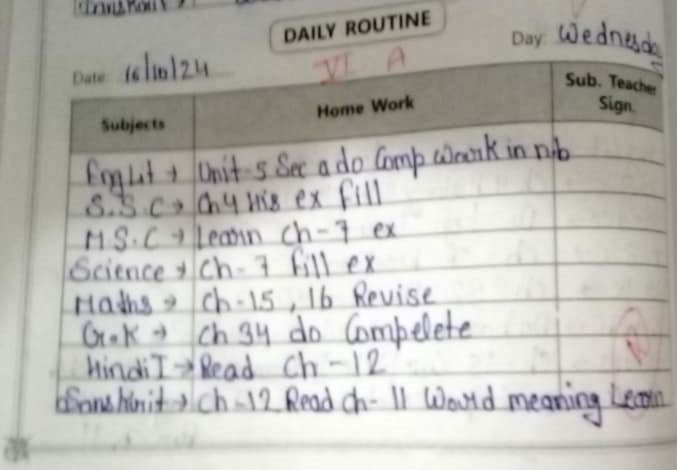 DAILY ROUTINE
Day: Wednesda
VI A
Date: 16/10/24
Subjects
Home Work
Sub. Teacher
Sign.
Eng Lit → Unit-5 Sec a do Comp Wark in n.b
S.S.C → Ch 4 his ex fill
M.S.C → Learn ch-7 ex
Science → Ch-7 fill ex
Maths → Ch-15, 16 Revise
G.K → Ch 34 do Compelete
Hindi I → Read Ch-12
Sanskrit → Ch-12 Read ch-11 Word meaning Learn